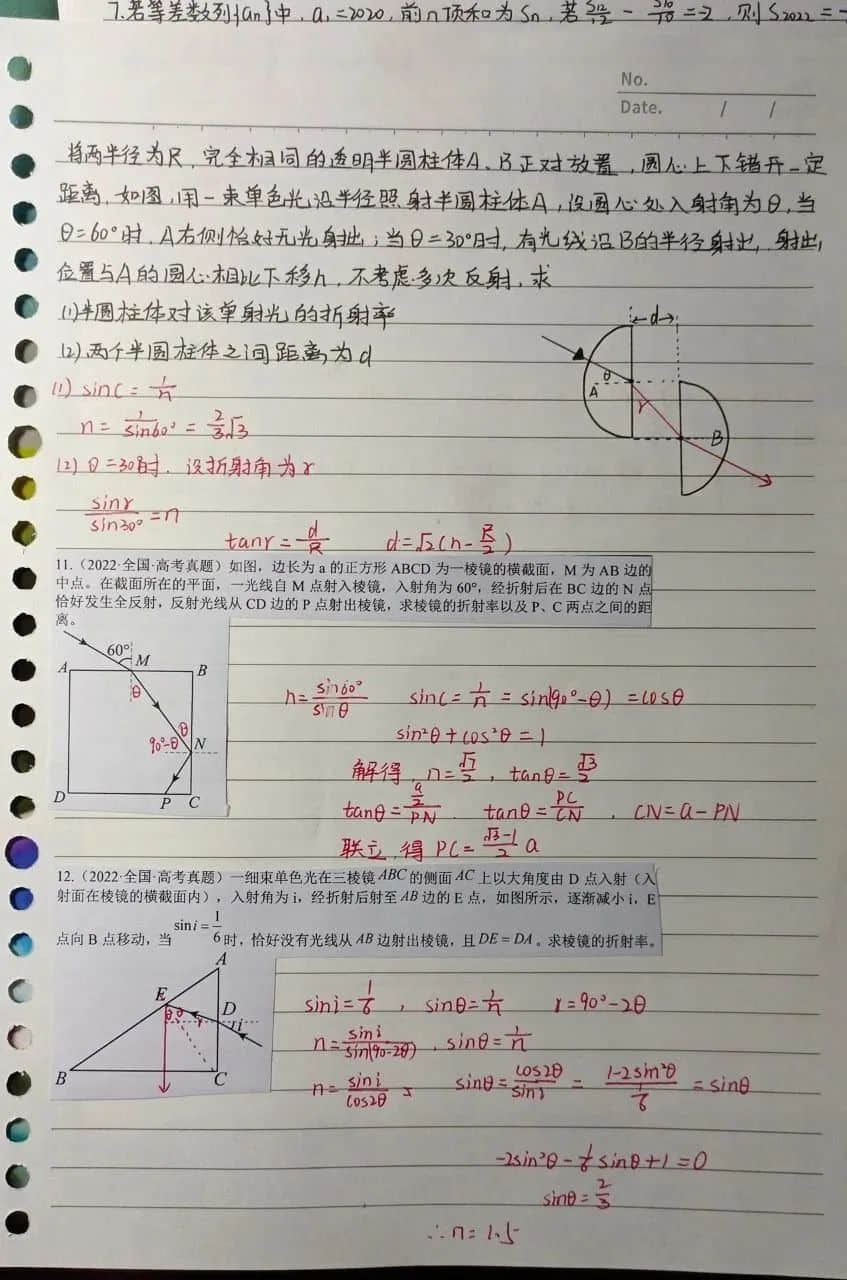 7.若等差数列{an}中,a₁=2020,前n项和为Sn,若S12/12 - S10/10 =2,则S2022=
No.
Date. / /
将两半径为R,完全相同的透明半圆柱体A、B正对放置,圆心上下错开一定
距离,如图,用一束单色光沿半径照射半圆柱体A,设圆心处入射角为θ,当
θ=60°时,A右侧恰好无光射出;当θ=30°时,有光线沿B的半径射出,射出
位置与A的圆心相比下移h,不考虑多次反射,求
(1)半圆柱体对该单射光的折射率
(2)两个半圆柱体之间距离为d
d
θ
A
r
B
(1) sinC=1/n
n=1/sin60°=2/3√3
(2) θ=30°时,设折射角为r
sinr/sin30°=n
tanr=d/R d=√2(h-R/2)
11.(2022·全国·高考真题)如图,边长为a的正方形ABCD为一棱镜的横截面,M为AB边的
中点。在截面所在的平面,一光线自M点射入棱镜,入射角为60°,经折射后在BC边的N点
恰好发生全反射,反射光线从CD边的P点射出棱镜,求棱镜的折射率以及P、C两点之间的距
离。
60°
M
A
B
θ
θ
90°-θ
N
D
P
C
n=sin60°/sinθ sinC=1/n=sin(90°-θ)=cosθ
sin²θ+cos²θ=1
解得,n=√7/2,tanθ=√3/2
tanθ=(a/2)/PN, tanθ=PC/CN, CN=a-PN
联立,得PC=(√3-1)/2 a
12.(2022·全国·高考真题)一细束单色光在三棱镜ABC的侧面AC上以大角度由D点入射(入
射面在棱镜的横截面内),入射角为i,经折射后射至AB边的E点,如图所示,逐渐减小i,E
点向B点移动,当sini=1/6时,恰好没有光线从AB边射出棱镜,且DE=DA。求棱镜的折射率。
A
E
D
θ
θ
r
i
B
C
sini=1/6, sinθ=1/n r=90°-2θ
n=sini/sin(90-2θ), sinθ=1/n
n=sini/cos2θ, sinθ=cos2θ/sini=(1-2sin²θ)/(1/6)=sinθ
-2sin²θ-1/6sinθ+1=0
sinθ=2/3
∴n=1.5